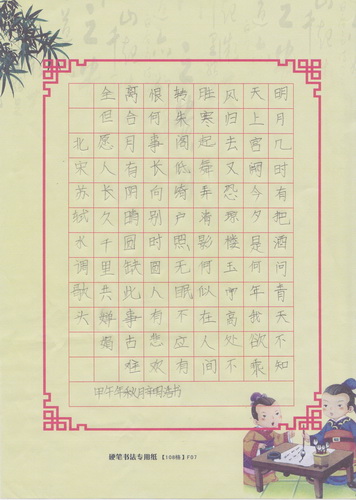 明月几时有把酒问青天不知
天上宫阙今夕是何年我欲乘
风归去又恐琼楼玉宇高处不
胜寒起舞弄清影何似在人间
转朱阁低绮户照无眠不应有
恨何事长向别时圆人有悲欢
离合月有阴晴圆缺此事古难
全但愿人长久千里共婵娟
北宋苏轼水调歌头
甲午年秋月书
硬笔书法专用纸【108格】FBT